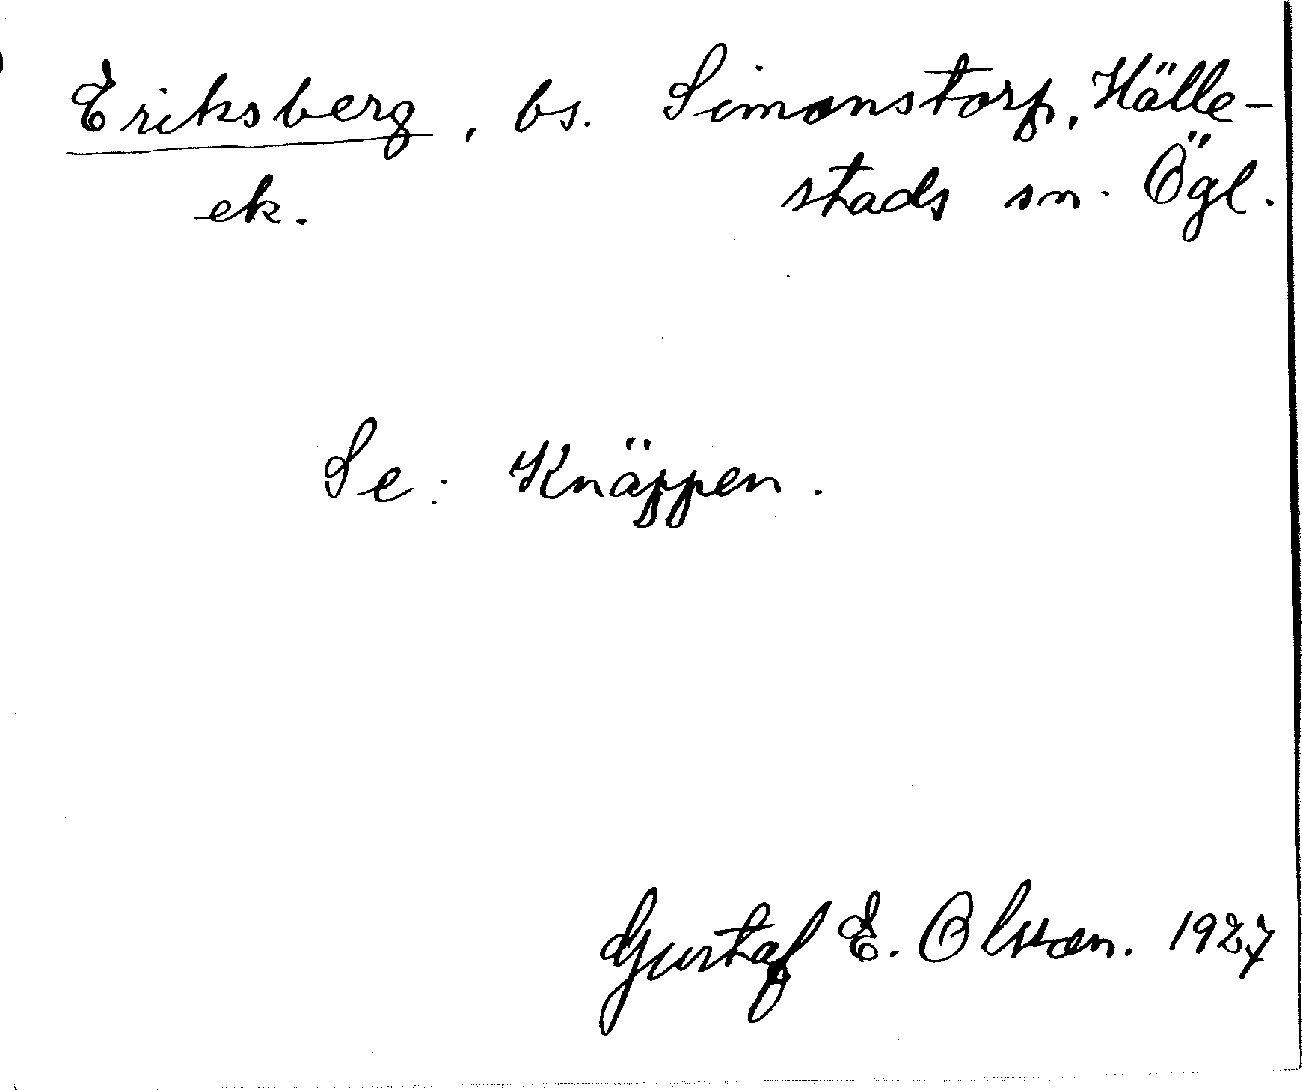 Eriksberg, bs. Simonstorp, Hälle-
ek. stads sn. Ögl.
Se: Knäppen.
Gustaf E. Olsson. 1927